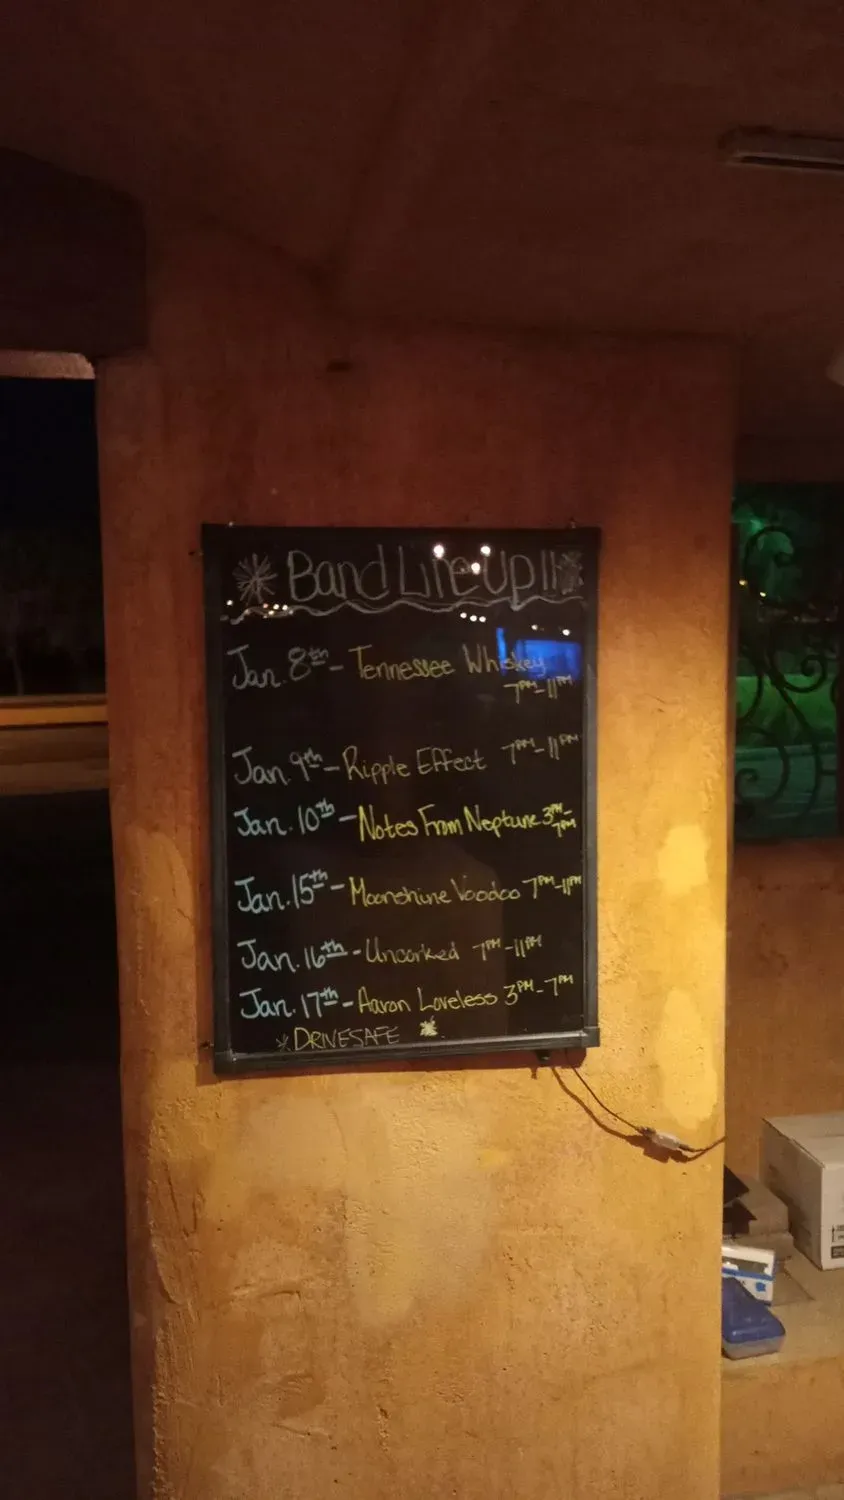 Band Line Up!!
Jan. 8th - Tennessee Whiskey
7PM-11PM
Jan. 9th - Ripple Effect 7PM-11PM
Jan. 10th - Notes From Neptune 3PM-
7PM
Jan. 15th - Moonshine Voodoo 7PM-11PM
Jan. 16th - Uncorked 7PM-11PM
Jan. 17th - Aaron Loveless 3PM-7PM
*DRIVESAFE